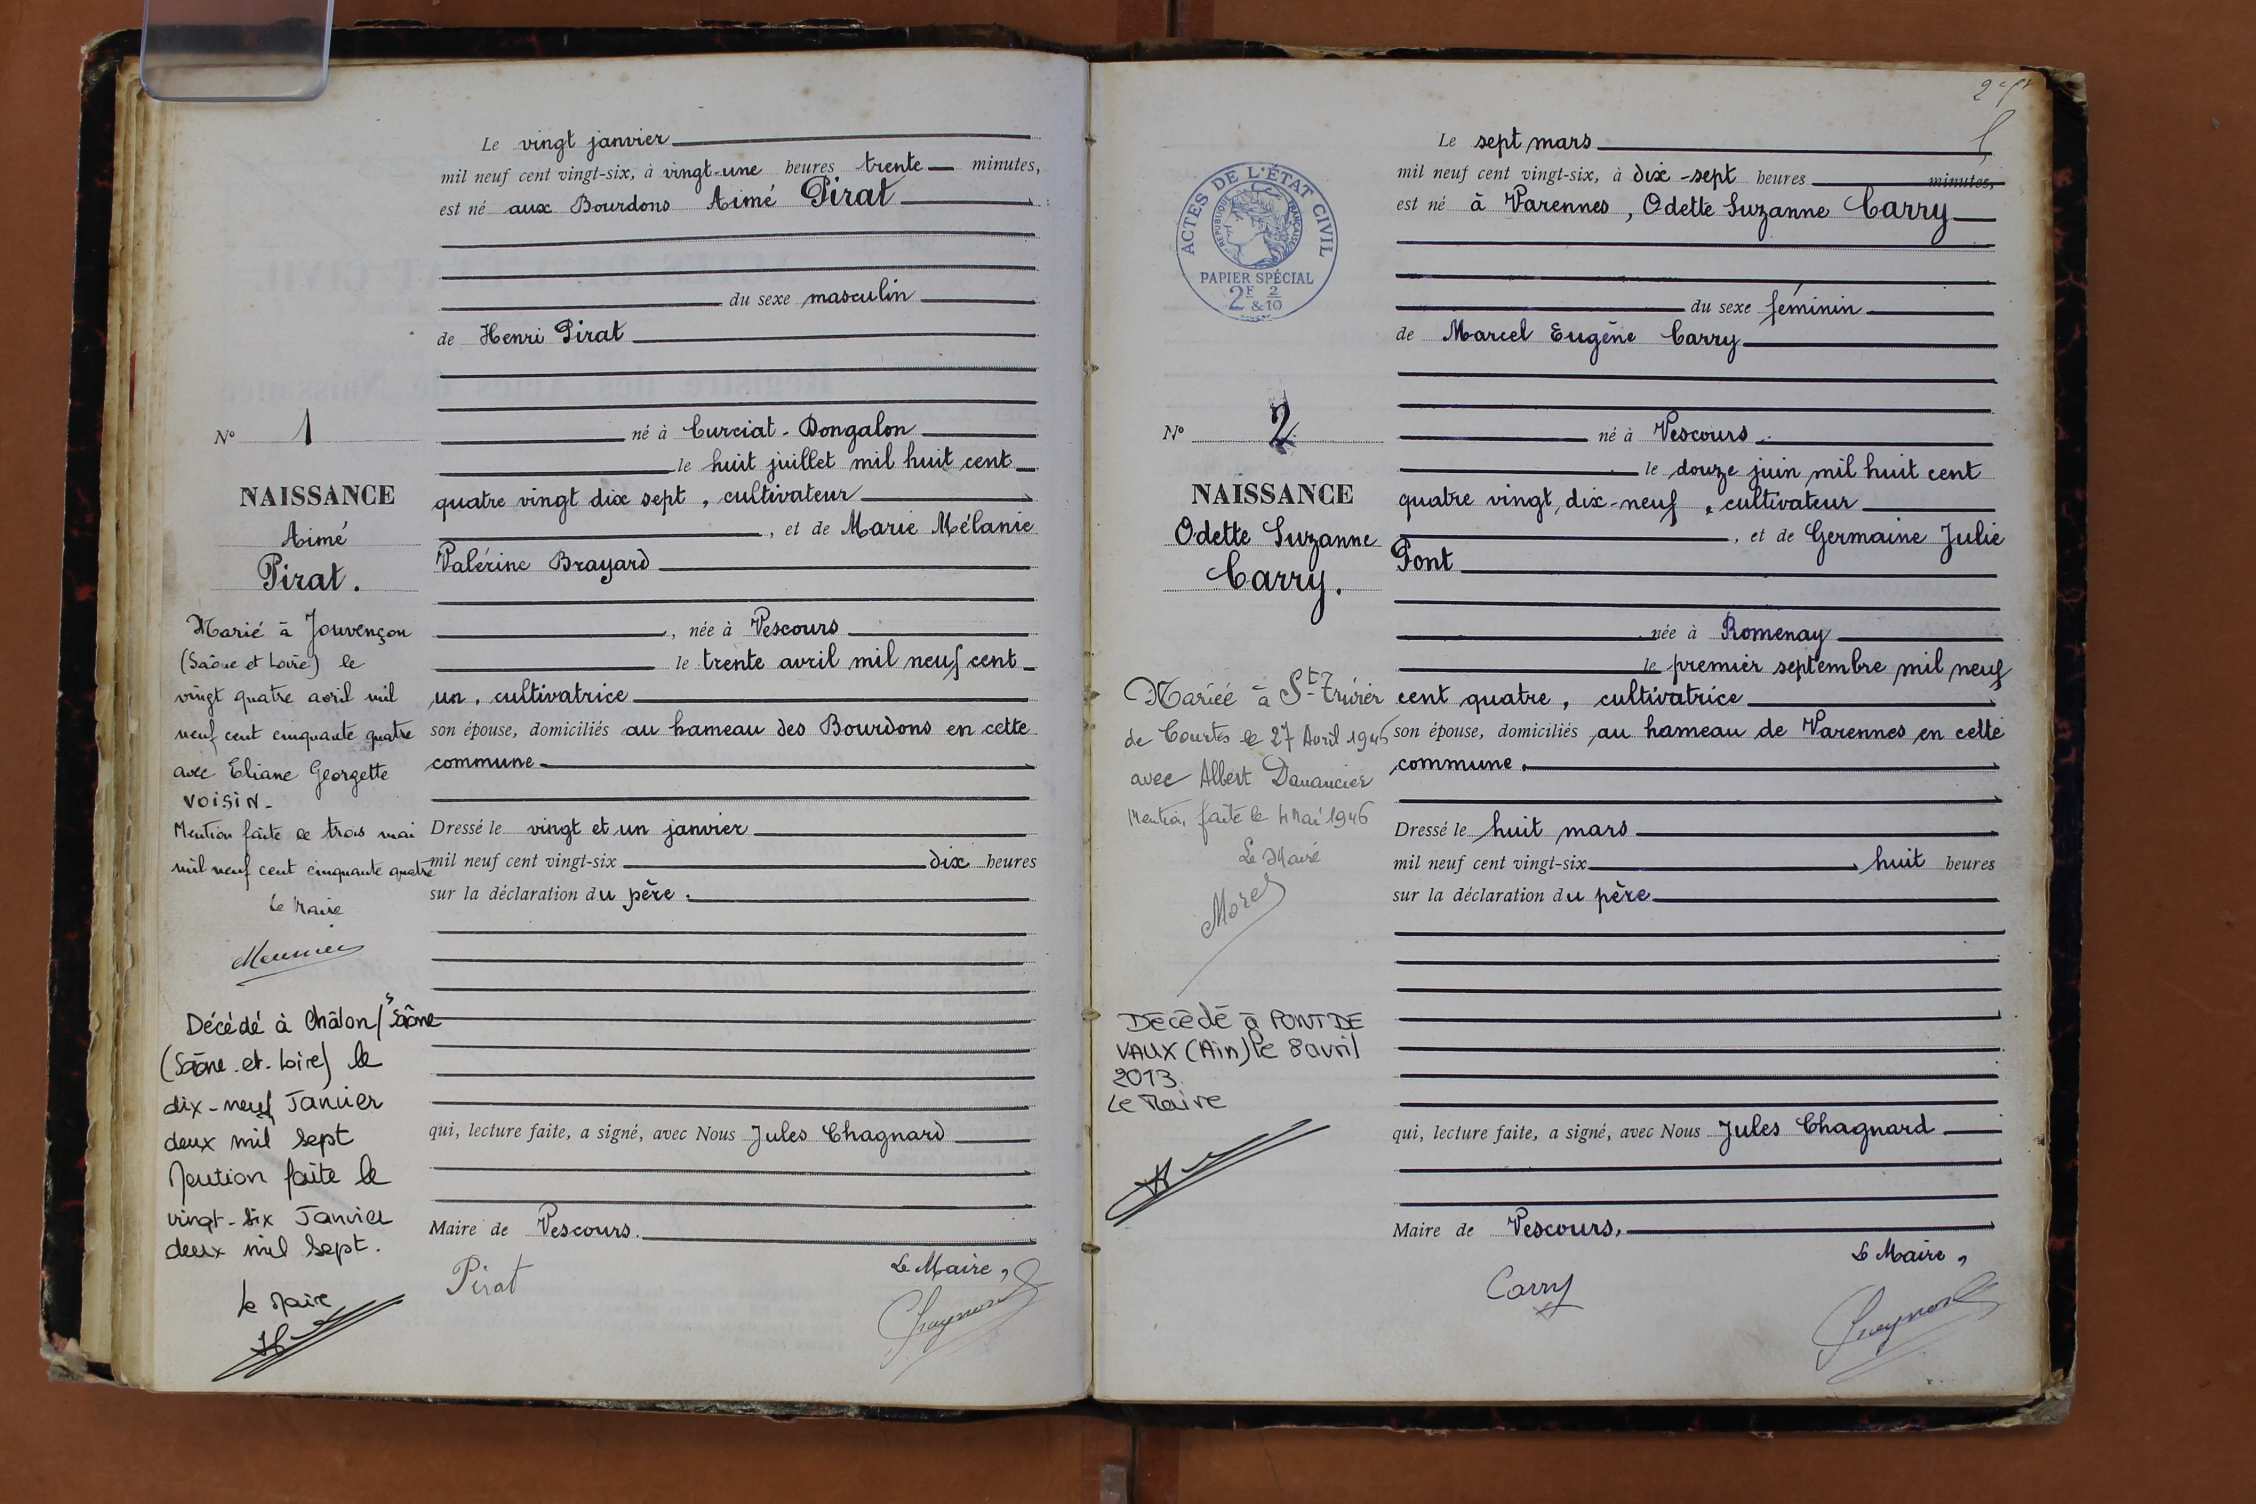 Le vingt janvier
mil neuf cent vingt-six, à vingt-une heures trente minutes,
est né aux Bourdons Aimé Pirat
du sexe masculin
de Henri Pirat
N° 1
né à Curciat-Dongalon
le huit juillet mil huit cent
NAISSANCE
quatre vingt dix sept, cultivateur
Aimé
, et de Marie Mélanie
Pirat.
Valérine Brayard
Marié à Jouvençon
(Saône et Loire) le
vingt quatre avril mil
neuf cent cinquante quatre
avec Eliane Georgette
VOISIN-
Mention faite le trois mai
mil neuf cent cinquante quatre
Le Maire
Meunier
, née à Vescours
le trente avril mil neuf cent
un, cultivatrice
son épouse, domiciliés au hameau des Bourdons en cette
commune
Dressé le vingt et un janvier
mil neuf cent vingt-six dix heures
sur la déclaration du père.
Décédé à Châlon/s Saône
(Saône-et-Loire) le
dix-neuf Janvier
deux mil sept
Mention faite le
vingt-six Janvier
deux mil sept.
Le Maire
qui, lecture faite, a signé, avec Nous Jules Chagnard
Maire de Vescours.
Le Maire,
Pirat
Le sept mars
mil neuf cent vingt-six, à dix-sept heures minutes,
est né à Varennes, Odette Suzanne Carry
ACTES DE L'ÉTAT CIVIL
RÉPUBLIQUE FRANÇAISE
PAPIER SPÉCIAL
2F & 2/10
du sexe féminin
de Marcel Eugène Carry
N° 2
né à Vescours
le douze juin mil huit cent
NAISSANCE
quatre vingt, dix-neuf, cultivateur
Odette Suzanne
, et de Germaine Julie
Carry.
Pont
née à Romenay
le premier septembre mil neuf
cent quatre, cultivatrice
son épouse, domiciliés au hameau de Varennes en cette
commune.
Mariée à St-Trivier
de Courtes le 27 Avril 1946
avec Albert Danancier
Mention faite le 4 Mai 1946
Le Maire
Morel
Dressé le huit mars
mil neuf cent vingt-six, huit heures
sur la déclaration du père
Décédé à PONT DE
VAUX (Ain) le 8 avril
2013
Le Maire
qui, lecture faite, a signé, avec Nous Jules Chagnard
Maire de Vescours.
Le Maire,
Carry